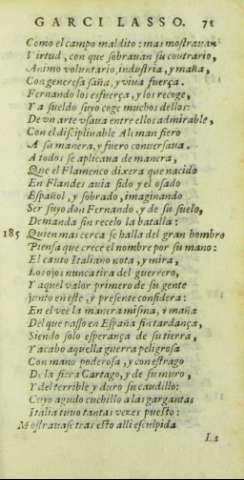 GARCI LASSO. 71
Como el campo maldito: mas mostrauan
Virtud, con que sobrauan su contrario,
Animo voluntario, industria, y maña,
Con generosa saña, y viua fuerça.
Fernando los esfuerça, y los recoge,
Y a sueldo suyo coge muchos dellos:
De vn arte vsaua entre ellos admirable,
Con el disciplinable Aleman fiero
A su manera, y fuero conuersaua.
A todos se aplicaua de manera,
Que el Flamenco dixera que nacido
En Flandes auia sido y el osado
Español, y sobrado, imaginando
Ser suyo don Fernando, y de su suelo,
Demanda sin recelo la batalla:
185 Quien mas cerca se halla del gran hombro
Piensa que crece el nombre por su mano:
El cauto Italiano nota, y mira,
Los ojos nunca tira del guerrero,
Y aquel valor primero de su gente
Junto en este, y presente considera:
En el vee la manera misma, y maña
Del que passo en España sin tardança,
Siendo solo esperança de su tierra,
Y acabo aquella guerra peligrosa
Con mano poderosa, y con estrago
De la fiera Cartago, y de su muro,
Y del terrible y duro su caudillo:
Cuyo agudo cuchillo a las gargantas
Italia tuuo tantas vezes puesto:
Mostrauase tras esto alli esculpida
La